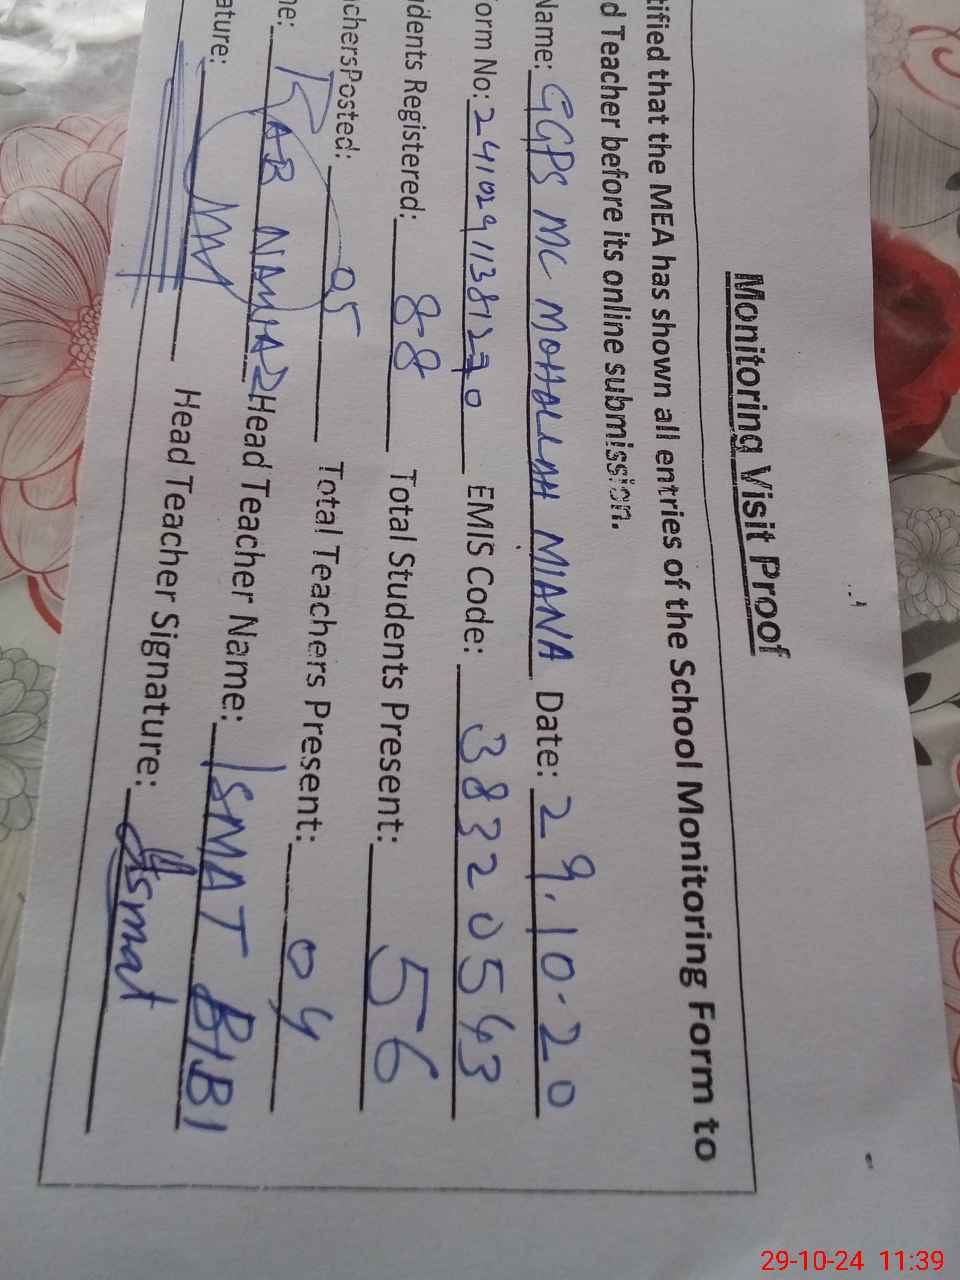 Monitoring Visit Proof
tified that the MEA has shown all entries of the School Monitoring Form to
d Teacher before its online submission.
Name: GGPS MC MOHALLAH MIANA Date: 29.10.20
orm No: 241029113812 EMIS Code: 38320543
dents Registered: 88 Total Students Present: 56
chersPosted: 05 Total Teachers Present: 04
ne: RAB NAWAZ Head Teacher Name: ISMAT BIBI
ature: Head Teacher Signature: Ismat
29-10-24 11:39